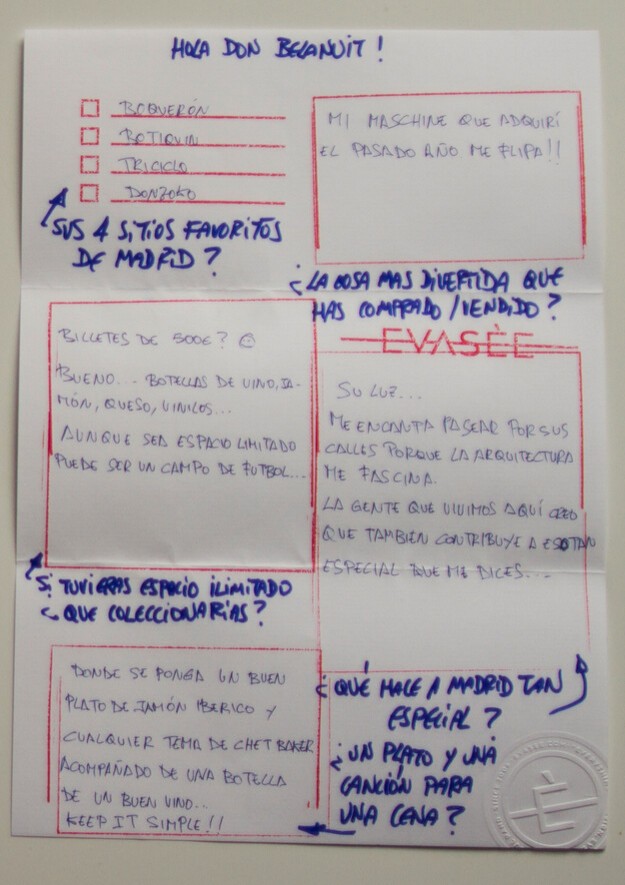 HOLA DON BELANUIT!
BOQUERÓN
BOTIQUIN
TRICICLO
DONZOKO
SUS 4 SITIOS FAVORITOS
DE MADRID?
MI MASCHINE QUE ADQUIRÍ
EL PASADO AÑO ME FLIPA!!
¿LA COSA MAS DIVERTIDA QUE
HAS COMPRADO/VENDIDO?
BILLETES DE 500€?
BUENO... BOTELLAS DE VINO, JA-
MÓN, QUESO, VINILOS...
AUNQUE SEA ESPACIO LIMITADO
PUEDE SER UN CAMPO DE FUTBOL...
SI TUVIERAS ESPACIO ILIMITADO
¿QUE COLECCIONARÍAS?
EVASÈE
SU LUZ...
ME ENCANTA PASEAR POR SUS
CALLES PORQUE LA ARQUITECTURA
ME FASCINA.
LA GENTE QUE VIVIMOS AQUÍ CREO
QUE TAMBIEN CONTRIBUYE A ESO TAN
ESPECIAL QUE ME DICES...
¿QUÉ HACE A MADRID TAN
ESPECIAL?
DONDE SE PONGA UN BUEN
PLATO DE JAMÓN IBERICO Y
CUALQUIER TEMA DE CHET BAKER
ACOMPAÑADO DE UNA BOTELLA
DE UN BUEN VINO..
KEEP IT SIMPLE!!
¿UN PLATO Y UNA
CANCIÓN PARA
UNA CENA?
È